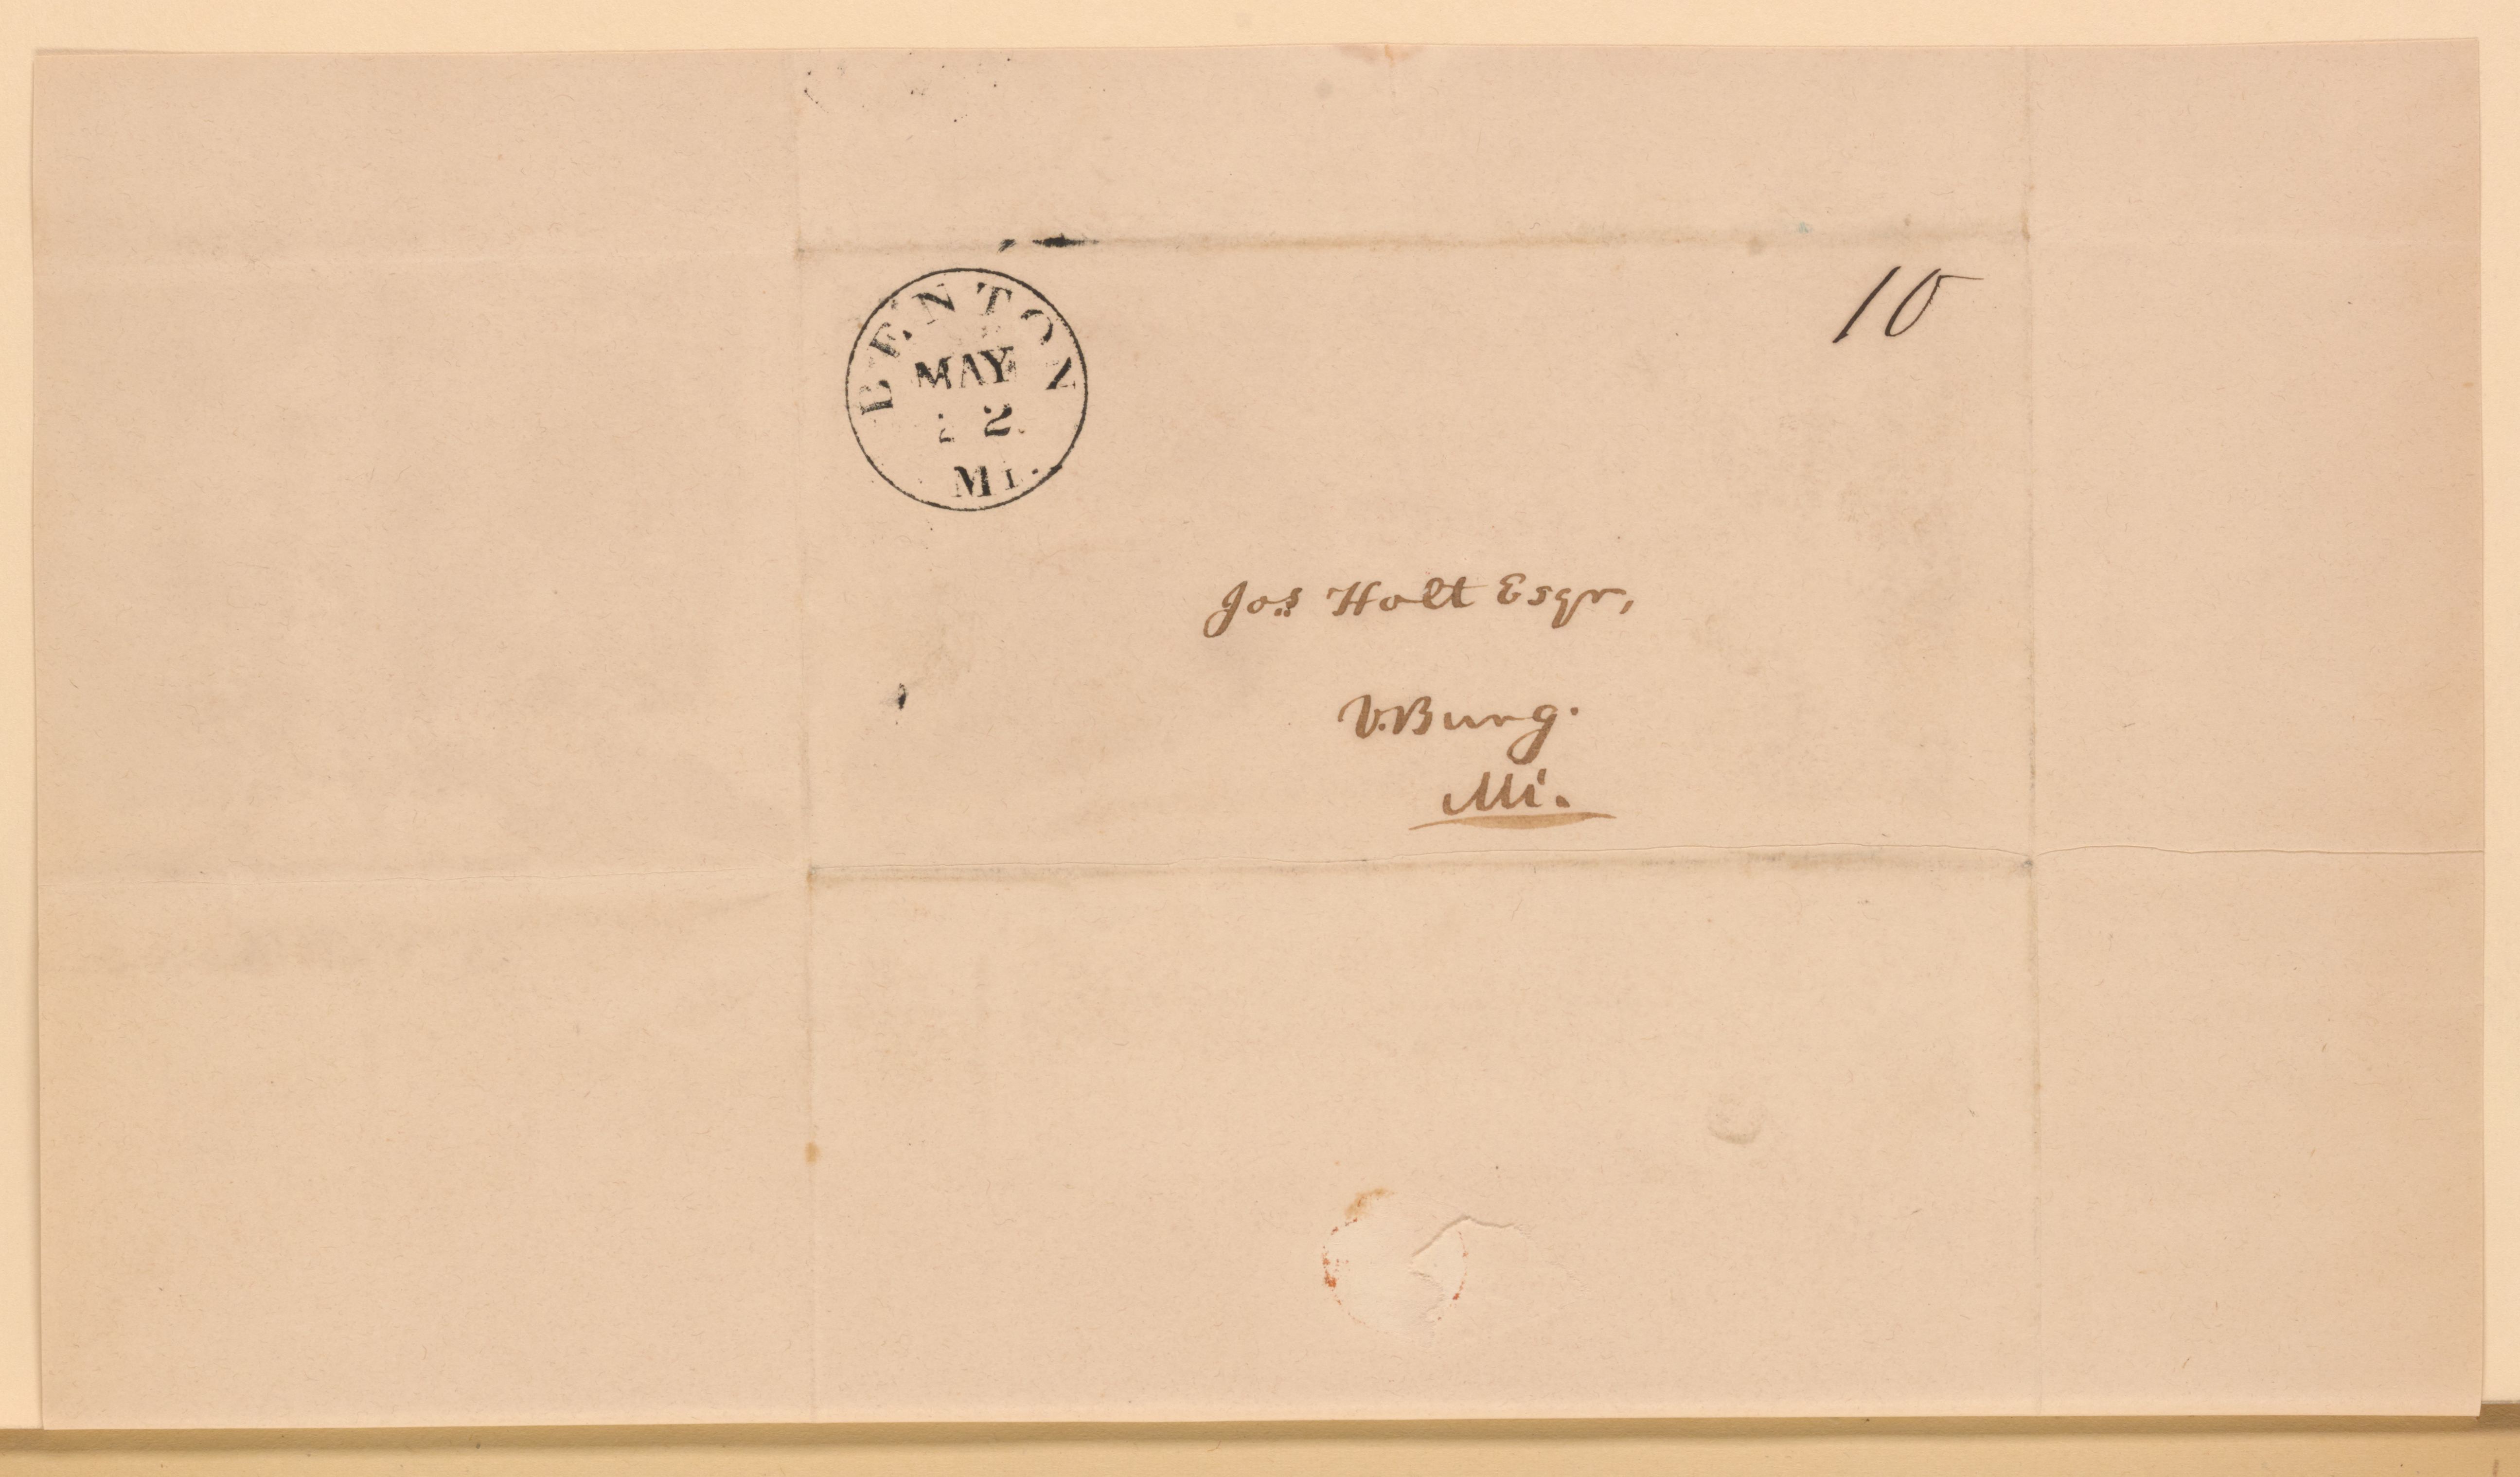 BENTON
MAY
22
MI.
10
Jos Holt Esqr,
V.Burg.
Mi.